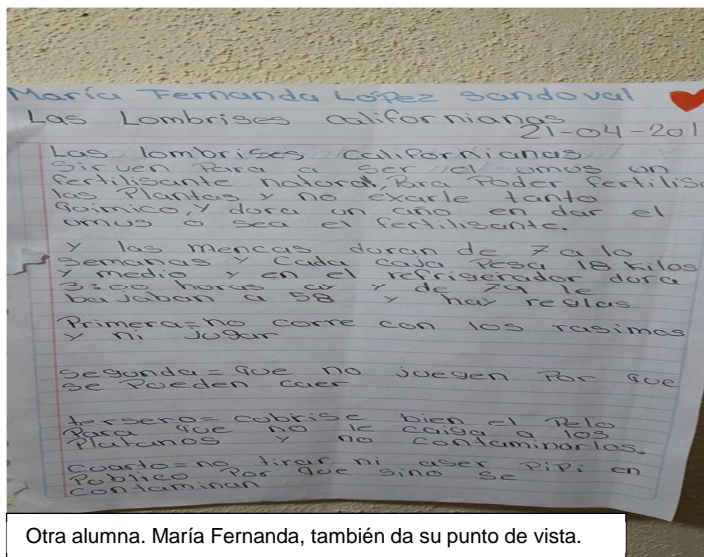 María Fernanda López Sandoval
Las Lombrises californianas
21-04-201
Las lombrises californianas
sirven Para a ser el umus un
fertilisante natoral, Para Poder fertilisa
las Plantas y no exarle tanto
químico, y dora un año en dar el
umus o sea el fertilisante.
y las mencas duran de 7 a 10
semanas y Cada caja Pesa 18 kilos
y medio y en el refrigerador dora
3:00 horas y de 79 le
bajaban a 58 y hay reglas
Primera= no corre con los rasimos
y ni jugar
segunda= que no juegen Por que
se Pueden caer
tersero= cubrise bien el Pelo
Para que no le caiga a los
Platanos y no contaminarlos.
cuarto= no tirar ni aser PiPi en
Poblico Por que sino se
contaminan
Otra alumna. María Fernanda, también da su punto de vista.